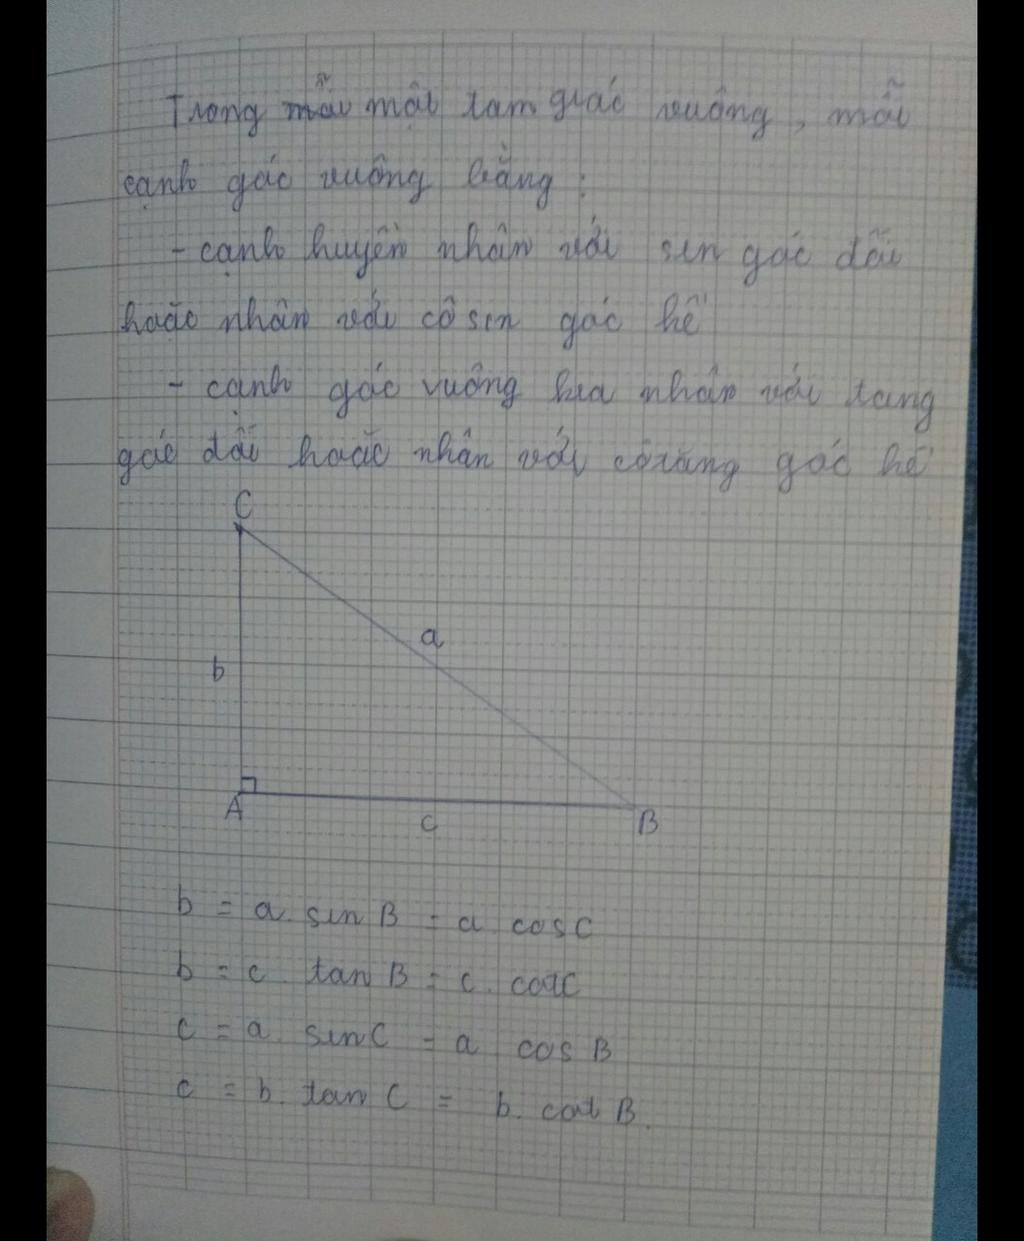 Trong mỗi một tam giác vuông, mỗi
cạnh góc vuông bằng :
- cạnh huyền nhân với sin góc đối
hoặc nhân với côsin góc kề
- cạnh góc vuông kia nhân với tang
góc đối hoặc nhân với côtang góc kề
C
a
b
A
c
B
b = a. sin B = a cos C
b = c. tan B = c. cot C
c = a. sin C = a cos B
c = b. tan C = b. cot B.